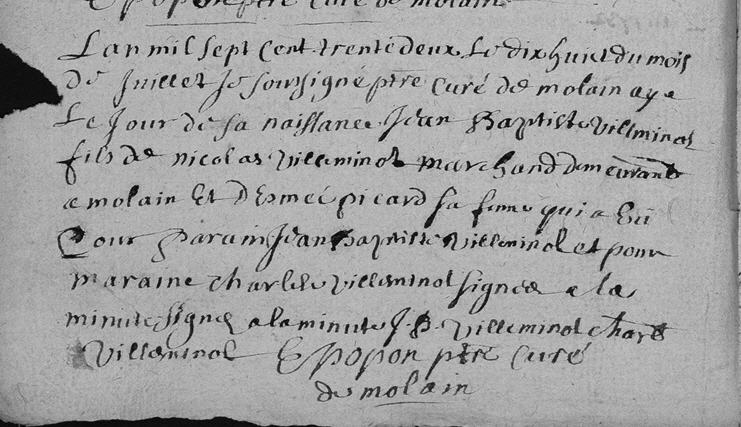 E popon ptre Curé de molain
Lan mil sept Cent trente deux Le dix huict du mois
De Juillet Je soussigné ptre Curé de molain ay e
Le Jour de sa naissance Jean Baptiste villminot
fils de nicolas villeminot marchand demeurant
a molain Et D Esmeé picard sa feme qui a Eu
Pour parain Jean baptiste villeminot et pour
maraine charlote villeminot signee a la
minute signes a la minute J B villeminot charlo
villeminot E popon ptre Curé
de molain